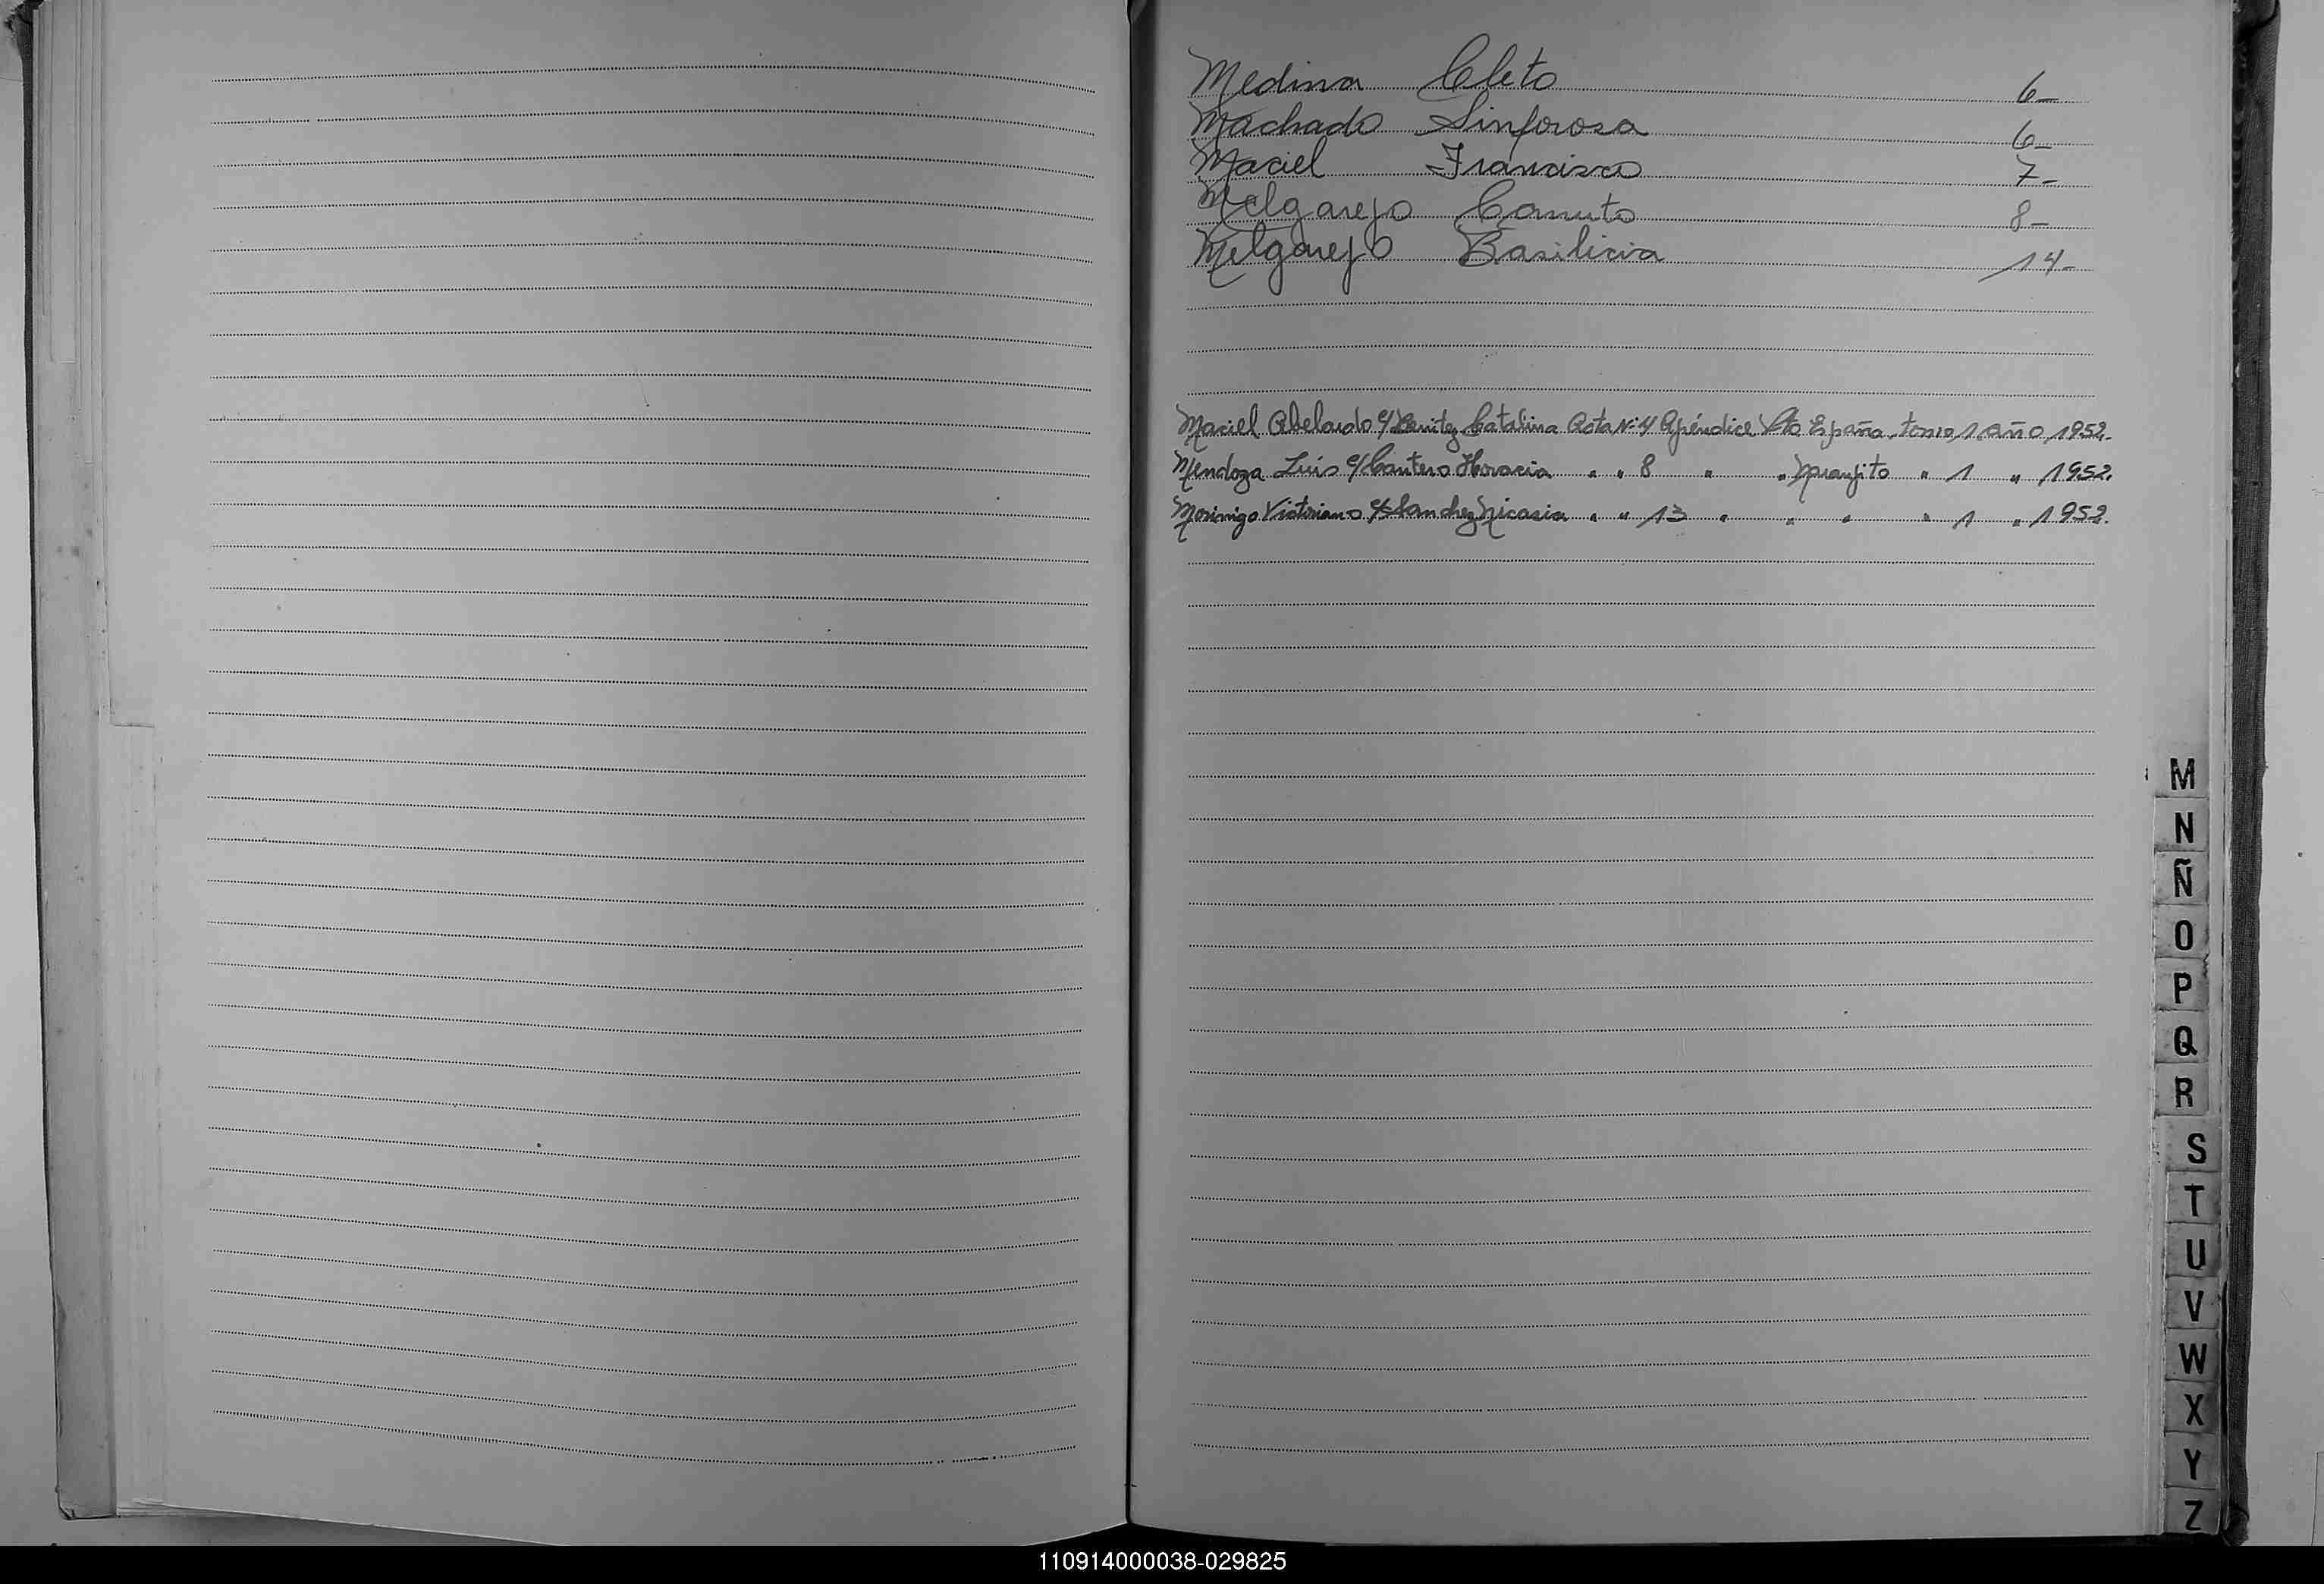 Medina Cleto 6-
Machado Sinforosa 6-
Maciel Francisco 7-
Melgarejo Canuto 8-
Melgarejo Basilicia 14-
Maciel Abelardo c/ Benitez Catalina Acta Nº 4 Apéndice Vta España, tomo, 1 año, 1952.
Mendoza Luis c/ Cantero Horacia " " 8 " " Naranjito " 1 " 1952.
Morinigo Victoriano c/ Sanchez Nicasia " " 13 " " " " 1 " 1952.
M
N
Ñ
O
P
Q
R
S
T
U
V
W
X
Y
Z
110914000038-029825